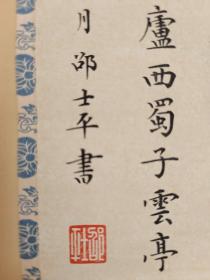 廬西蜀子雲亭
月邵士平書